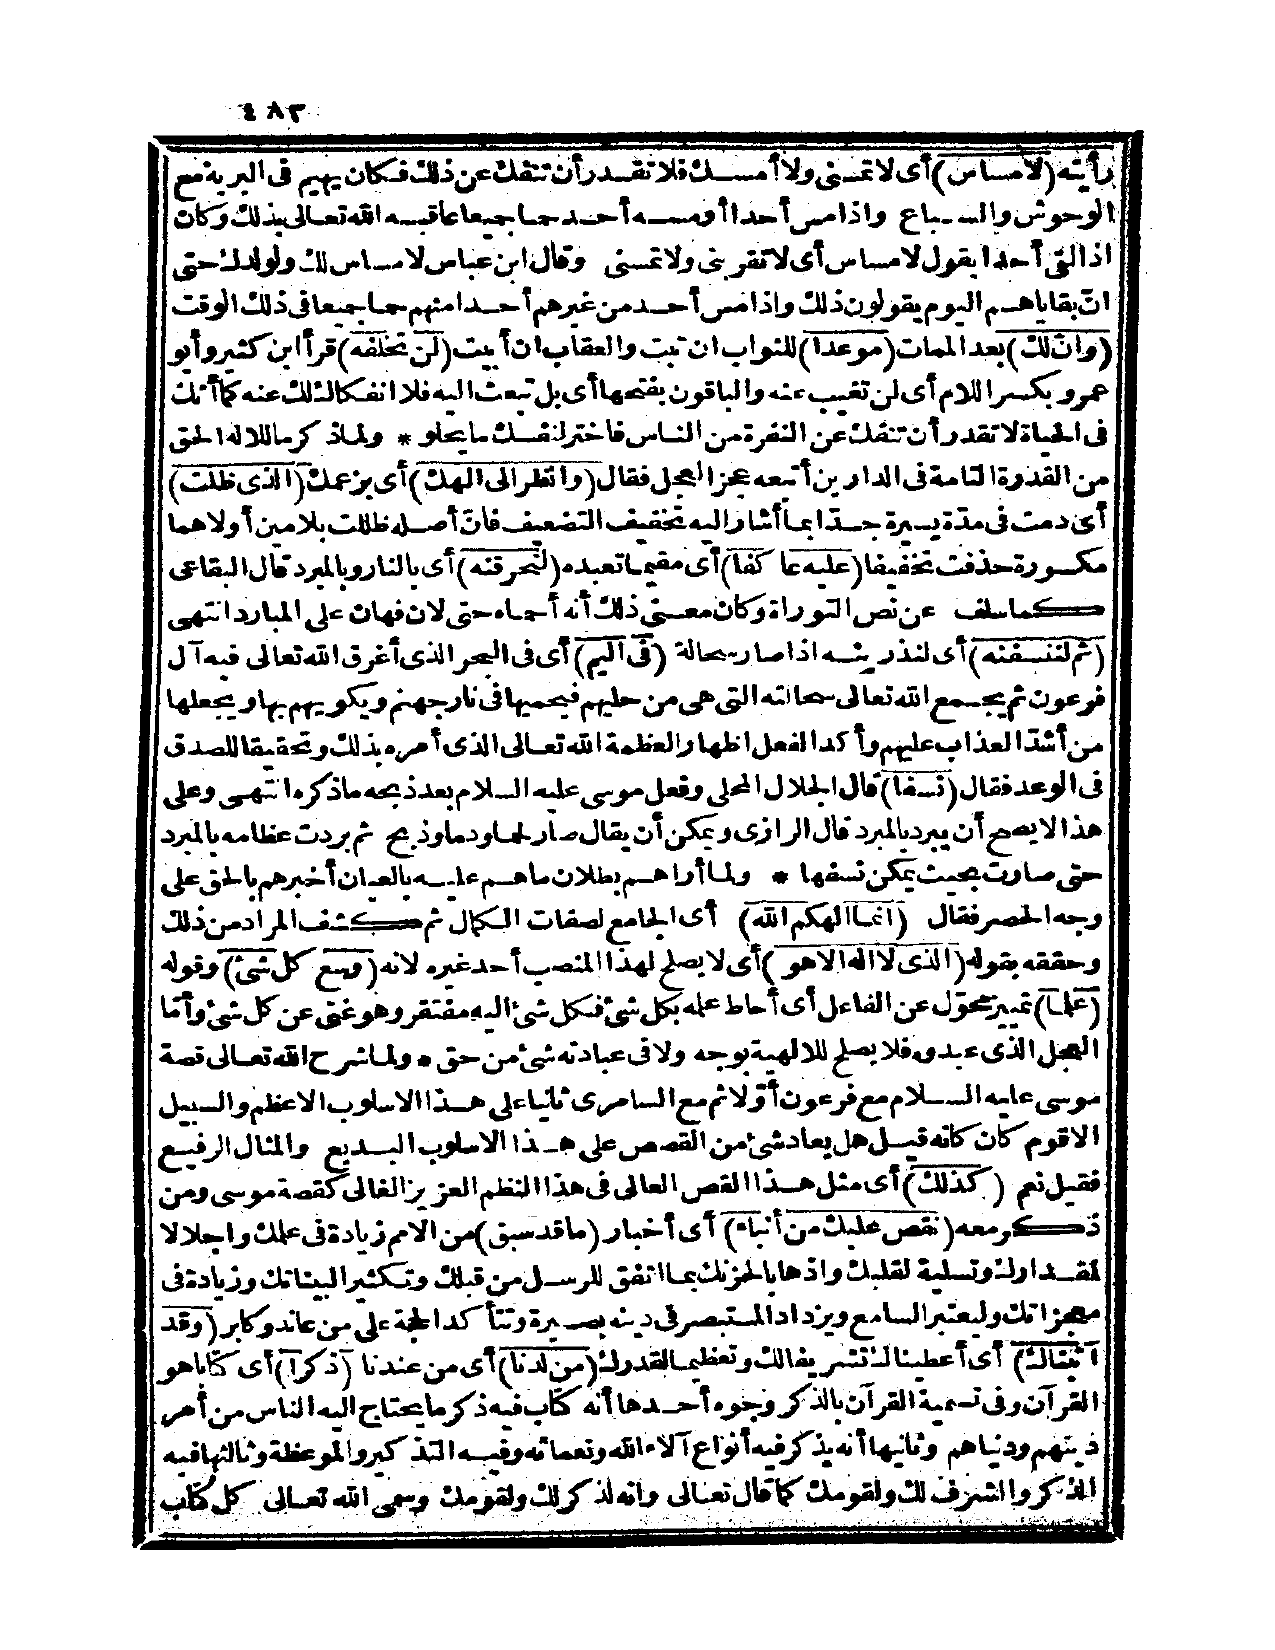 ٤٨٣
رأيته (لامساس) أى لا تمسنى ولا أمسك فلا تقدر أن تنفك عن ذلك فكان يهيم فى البرية مع
الوحوش والسباع واذا مس أحدا أو مسه أحد حما جميعا عاقبه الله تعالى بذلك وكان
اذا لقى أحدا يقول لامساس أى لا تقربنى ولا تمسنى وقال ابن عباس لا مساس لك ولولدك حتى
انّ بقاياهم اليوم يقولون ذلك واذا مس أحد من غيرهم أحدا منهم حما جميعا فى ذلك الوقت
(وانّ لك) بعد الممات (موعدا) للثواب ان تبت والعقاب ان أبيت (لن تخلفه) قرأ ابن كثير وأبو
عمرو بكسر اللام أى لن تغيب عنه والباقون بفتحها أى بل تبعث اليه فلا انفكاك لك عنه كما أنك
فى الحياة لا تقدر أن تنفك عن النفرة من الناس فاختر لنفسك ما يحلو * ولما ذكر ما للاله الحق
من القدرة التامة فى الدارين أتبعه عجز العجل فقال (وانظر الى الهك) أى بزعمك (الذى ظلت)
أى دمت فى مدّة يسيرة جدّا بما أشار اليه تخفيف التضعيف فانّ أصله ظللت بلامين أولاهما
مكسورة حذفت تخفيفا (عليه عاكفا) أى مقيما تعبده (لنحرقنه) أى بالنار وبالمبرد قال البقاعى
كما سلف عن نص التوراة وكان معنى ذلك أنه أحماه حتى لان فهان على المبارد انتهى
(ثم لننسفنه) أى لنذرينه اذا صار سحالة (فى اليم) أى فى البحر الذى أغرق الله تعالى فيه آل
فرعون ثم يجمع الله تعالى سحالته التى هى من حليهم فيحميها فى نار جهنم ويكويهم بها ويجعلها
من أشدّ العذاب عليهم وأكد الفعل اظهارا لعظمة الله تعالى الذى أمره بذلك وتحقيقا للصدق
فى الوعد فقال (نسفا) قال الجلال المحلى وفعل موسى عليه السلام بعد ذبحه ما ذكره انتهى وعلى
هذا لا يصح أن يبرد بالمبرد قال الرازى ويمكن أن يقال صار لحما ودما وذبح ثم بردت عظامه بالمبرد
حتى صارت بحيث يمكن نسفها * ولما أراهم بطلان ما هم عليه بالعيان أخبرهم بالحق على
وجه الحصر فقال (انما الهكم الله) أى الجامع لصفات الكمال ثم كشف المراد من ذلك
وحققه بقوله (الذى لا اله الا هو) أى لا يصلح لهذا المنصب أحد غيره لانه (وسع كل شئ) وقوله
(علما) تمييز محوّل عن الفاعل أى أحاط علمه بكل شئ فكل شئ اليه مفتقر وهو غنى عن كل شئ وأمّا
العجل الذى عبدوه فلا يصلح للالهية بوجه ولا فى عبادته شئ من حق * ولما شرح الله تعالى قصة
موسى عليه السلام مع فرعون أوّلا ثم مع السامرى ثانيا على هذا الاسلوب الاعظم والسبيل
الاقوم كان كانه قيل هل يعاد شئ من القصص على هذا الاسلوب البديع والمثال الرفيع
فقيل نعم (كذلك) أى مثل هذا القص العالى فى هذا النظم العزيز الغالى كقصة موسى ومن
ذكر معه (نقص عليك من أنباء) أى أخبار (ما قد سبق) من الامم زيادة فى علمك واجلالا
لمقدارك وتسلية لقلبك واذهابا لحزنك بما اتفق للرسل من قبلك وتكثيرا لبيناتك وزيادة فى
معجزاتك وليعتبر السامع ويزداد المستبصر فى دينه بصيرة وتتأكد الحجة على من عاند وكابر (وقد
آتيناك) أى أعطيناك تشريفا لك وتعظيما لقدرك (من لدنا) أى من عندنا (ذكرا) أى كتابا هو
القرآن وفى تسمية القرآن بالذكر وجوه أحدها أنه كتاب فيه ذكر ما يحتاج اليه الناس من أمر
دينهم ودنياهم وثانيها أنه يذكر فيه أنواع آلاء الله ونعمائه وفيه التذكير والموعظة وثالثها فيه
الذكر والشرف لك ولقومك كما قال تعالى وانه لذكر لك ولقومك وسمى الله تعالى كل كتاب